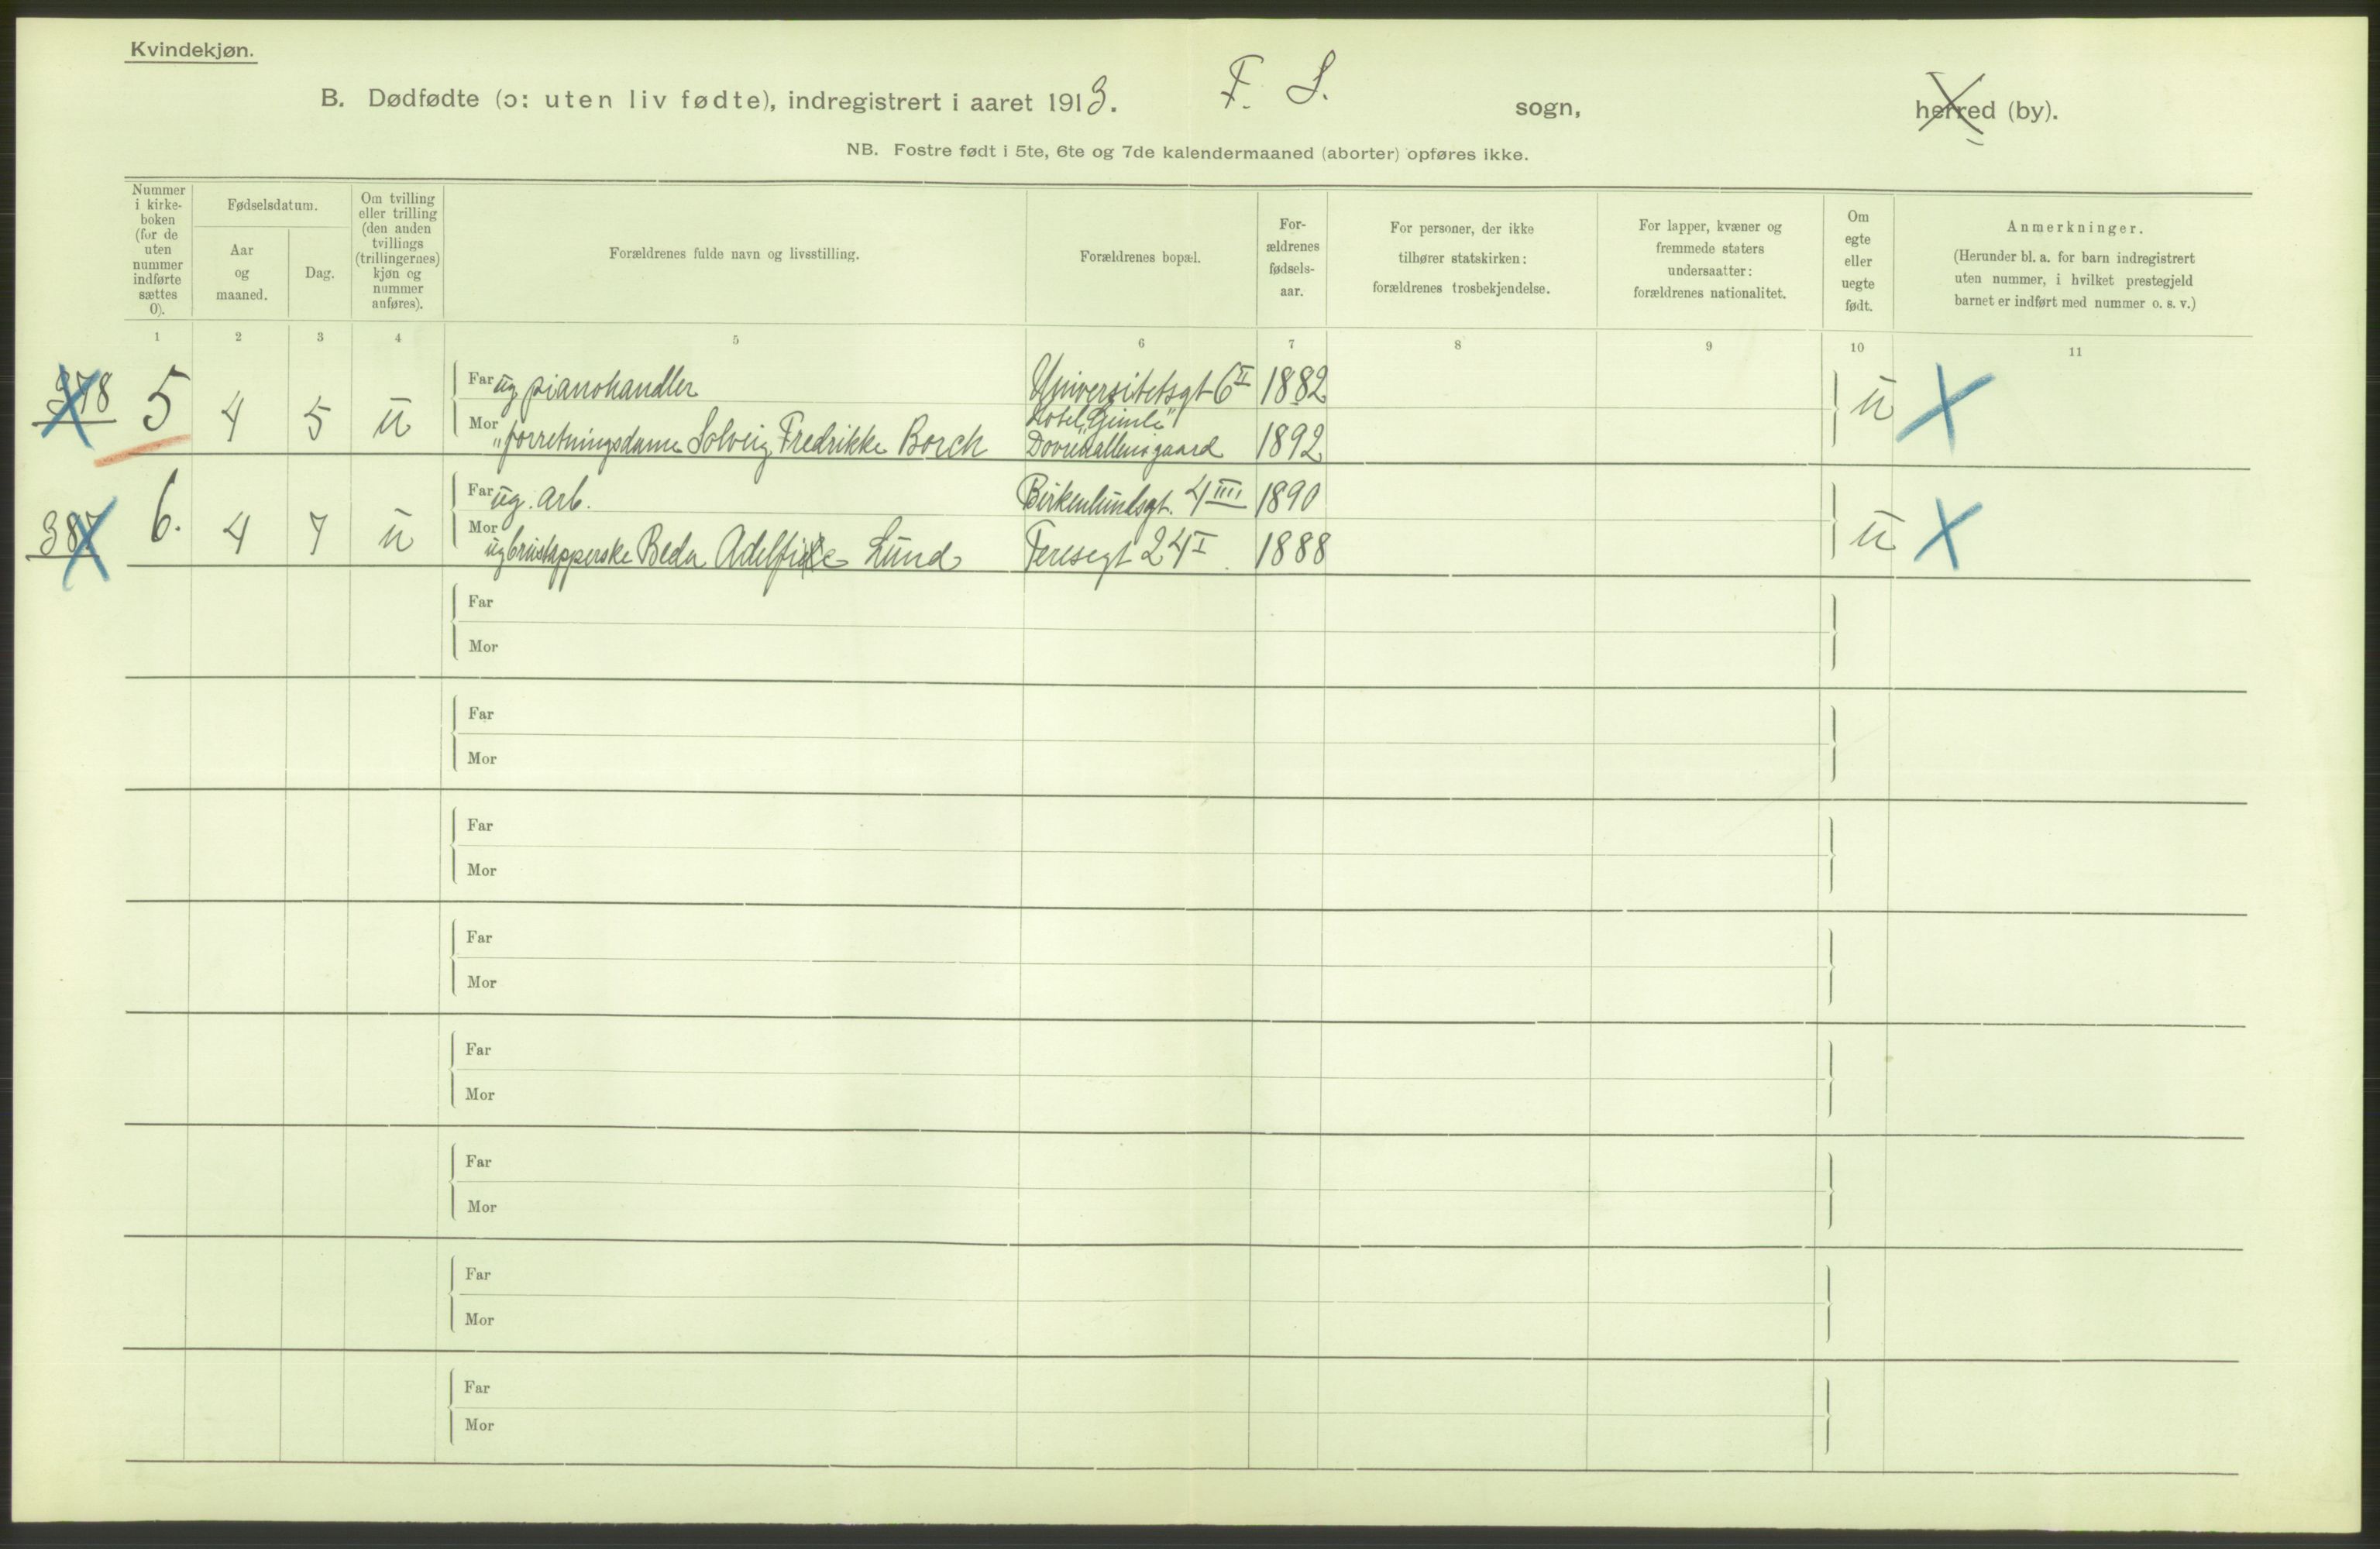 Kvindekjøn.
B. Dødfødte (ɔ: uten liv fødte), indregistrert i aaret 1913. F. S. sogn, herred (by).
NB. Fostre født i 5te, 6te og 7de kalendermaaned (aborter) opføres ikke.
Nummer i kirke-boken (for de uten nummer indførte sættes 0).
Fødselsdatum.
Aar og maaned.
Dag.
Om tvilling eller trilling (den anden tvillings (trillingernes) kjøn og nummer anføres).
Forældrenes fulde navn og livsstilling.
Forældrenes bopæl.
For-ældrenes fødsels-aar.
For personer, der ikke tilhører statskirken: forældrenes trosbekjendelse.
For lapper, kvæner og fremmede staters undersaatter: forældrenes nationalitet.
Om egte eller uegte født.
Anmerkninger.
(Herunder bl. a. for barn indregistrert uten nummer, i hvilket prestegjeld barnet er indført med nummer o. s. v.)
1 2 3 4 5 6 7 8 9 10 11
378 5 4 5 ū
Far ug pianohandler Universitetsgt 6 II 1882 ū
Hotel „Gimle"
Mor " forretningsdame Solveig Fredrikke Borch Dovrehallensgaard 1892
387 6. 4 7 ū
Far ug. arb. Birkenlundsgt. 4 IIII 1890 ū
Mor ug Beda Lund Teresegt 24 I 1888
Far
Mor
Far
Mor
Far
Mor
Far
Mor
Far
Mor
Far
Mor
Far
Mor
Far
Mor